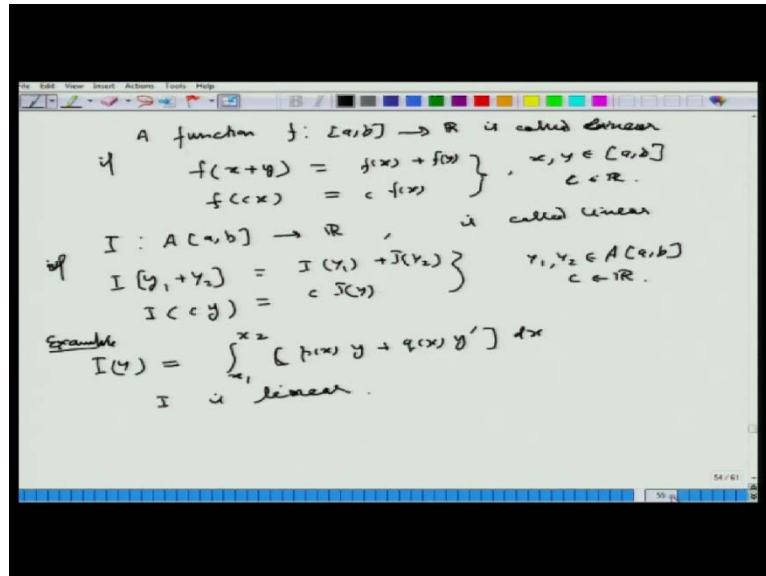 File Edit View Insert Actions Tools Help
A function f : [a,b] → R is called linear
if f(x+y) = f(x) + f(y) } , x, y ∈ [a,b]
f(cx) = c f(x) c ∈ R.
I : A[a,b] → R , is called linear
if I[y₁+y₂] = I(y₁) + I(y₂) } y₁, y₂ ∈ A[a,b]
I(cy) = c I(y) c ∈ R.
Example
I(y) = ∫ₓ₁ˣ² [p(x) y + q(x) y'] dx
I is linear.
54/61
55